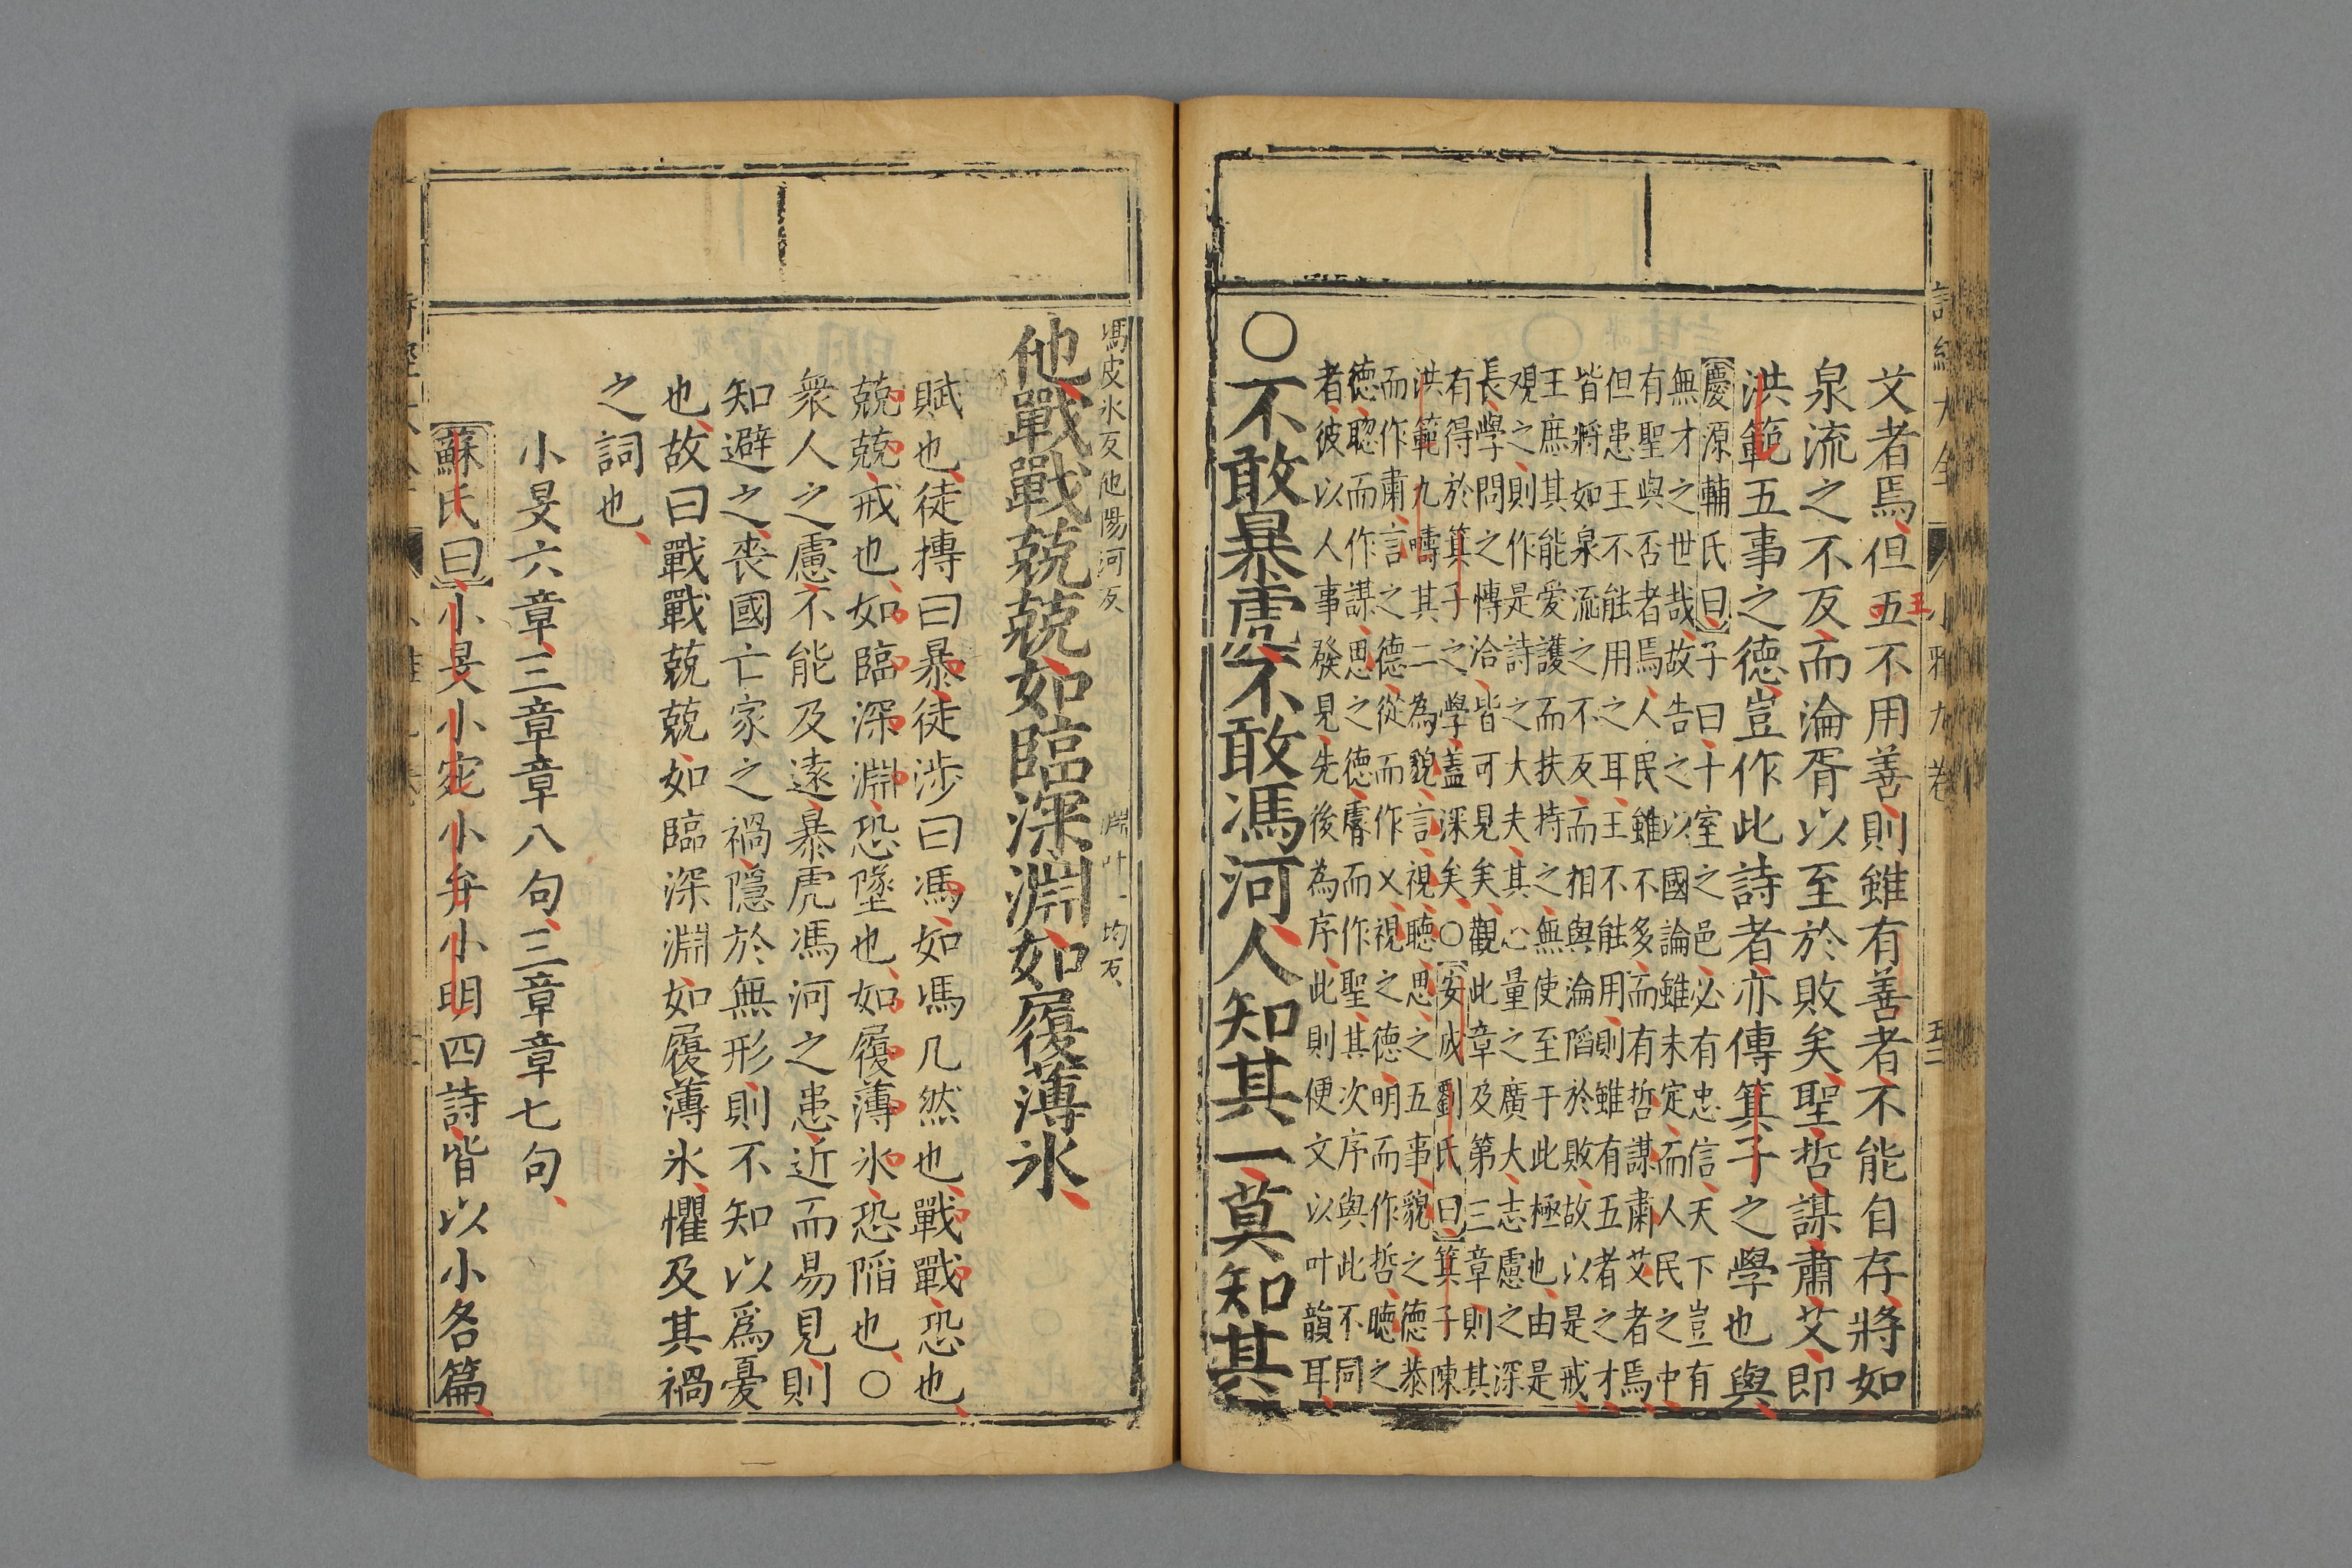 詩經大全 小雅九卷 五二
艾者焉但五不用善則雖有善者不能自存將如
王
泉流之不反而淪胥以至於敗矣聖哲謀肅艾即
洪範五事之德豈作此詩者亦傳箕子之學也與
慶源輔氏曰子曰十室之邑必有忠信天下豈有
無才之世哉故告之以國論雖未定而人民之中
有聖與否者焉人民雖不多而有哲謀肅艾者焉
但患王不能用之耳王不能用則雖有五者之才
皆將如泉流之不反而相與淪陷於敗故以是戒
王庶其能愛護而扶持之無使至于此極也由是
观之則作是詩之大夫其心量之廣大志慮之深
長學問之慱洽皆可見矣觀此章及第三章則其
有得於箕子之學蓋深矣○安成劉氏曰箕子陳
洪範九疇其二為貌言視聽思之五事貌之德恭
而作肅言之德從而作乂視之德明而作哲聴之
德聦而作謀思之德睿而作聖其次序與此不同
者彼以人事發見先後為序此則便文以叶韻耳
○不敢暴虎不敢馮河人知其一莫知其
馮皮氷反他陽河反 淵叶一均反
他戰戰兢兢如臨深淵如履薄氷
賦也徒搏曰暴徒涉曰馮如馮几然也戰戰恐也
兢兢戒也如臨深淵恐墜也如履薄氷恐陷也○
衆人之慮不能及遠暴虎馮河之患近而易見則
知避之喪國亡家之禍隱於無形則不知以爲憂
也故曰戰戰兢兢如臨深淵如履薄氷懼及其禍
之詞也
小旻六章三章章八句三章章七句
蘇氏曰小旻小宛小弁小明四詩皆以小名篇